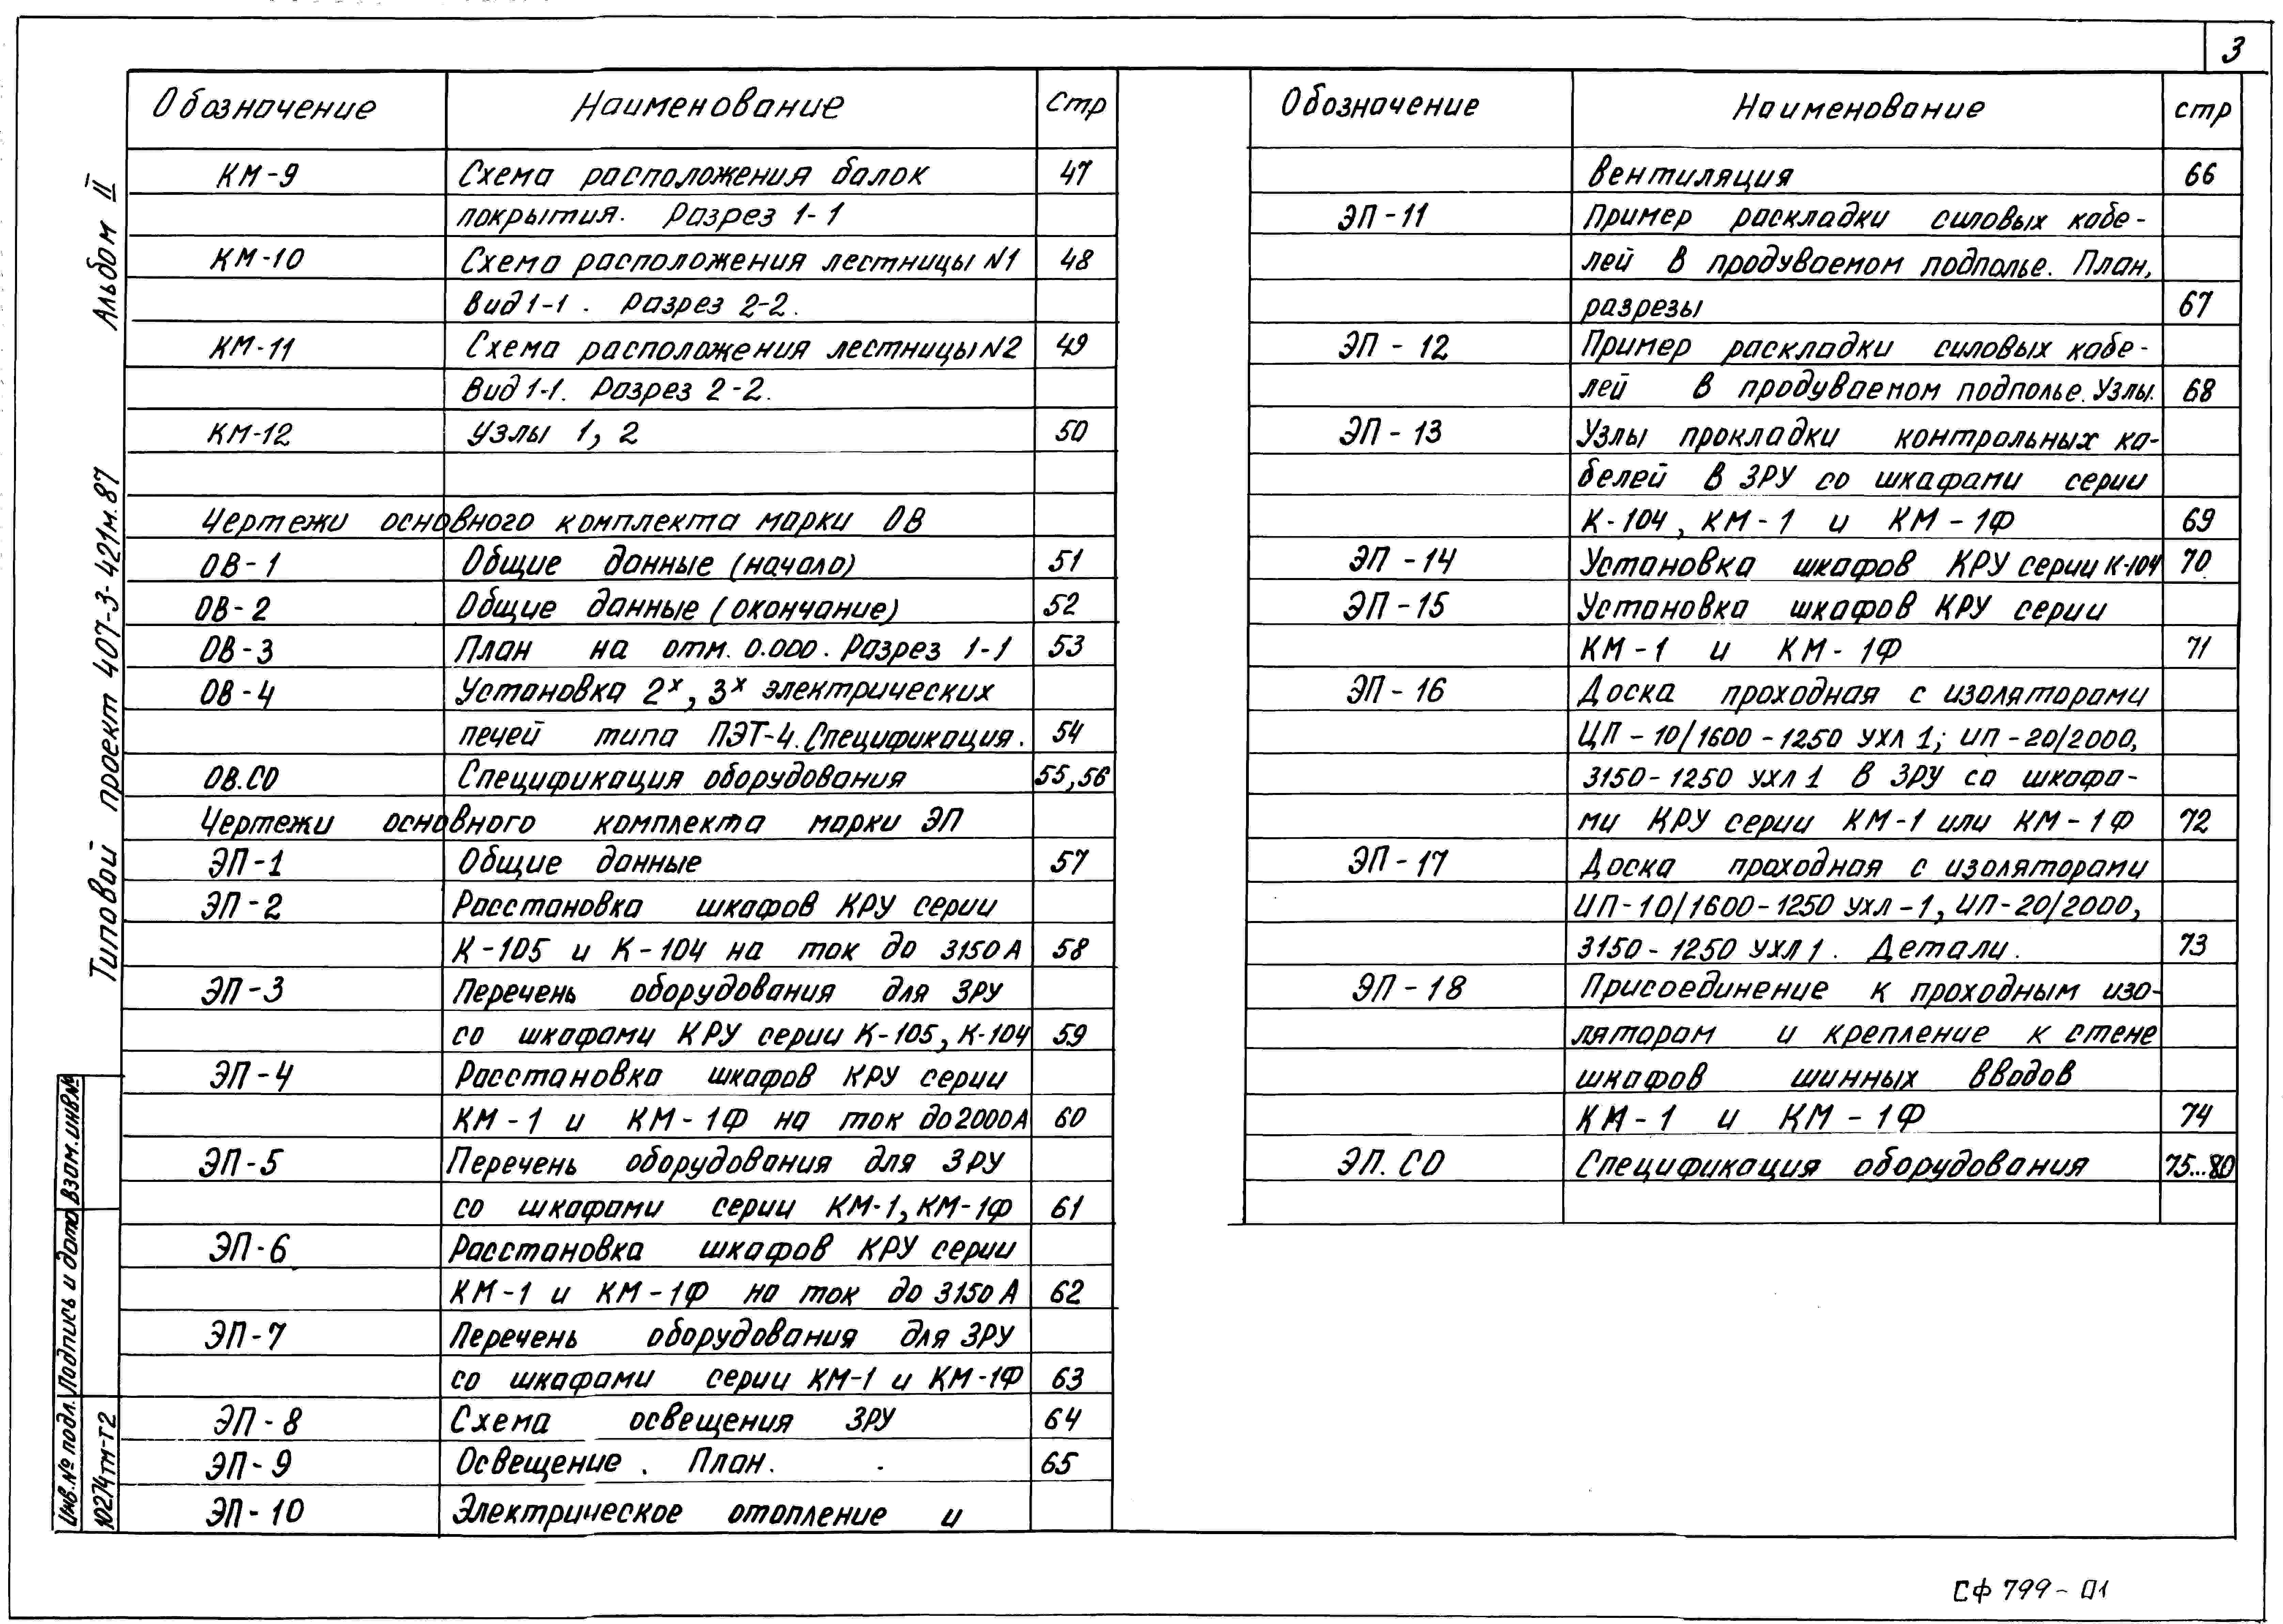 3
Обозначение Наименование Стр
КМ-9 Схема расположения балок 47
покрытия. Разрез 1-1
КМ-10 Схема расположения лестницы N1 48
Вид 1-1. Разрез 2-2.
КМ-11 Схема расположения лестницы N2 49
Вид 1-1. Разрез 2-2.
КМ-12 Узлы 1, 2 50
Чертежи основного комплекта марки ОВ
ОВ-1 Общие данные (начало) 51
ОВ-2 Общие данные (окончание) 52
ОВ-3 План на отм. 0.000. Разрез 1-1 53
ОВ-4 Установка 2х, 3х электрических
печей типа ПЭТ-4. Спецификация. 54
ОВ.СО Спецификация оборудования 55,56
Чертежи основного комплекта марки ЭП
ЭП-1 Общие данные 57
ЭП-2 Расстановка шкафов КРУ серии
К-105 и К-104 на ток до 3150 А 58
ЭП-3 Перечень оборудования для ЗРУ
со шкафами КРУ серии К-105, К-104 59
ЭП-4 Расстановка шкафов КРУ серии
КМ-1 и КМ-1Ф на ток до 2000А 60
ЭП-5 Перечень оборудования для ЗРУ
со шкафами серии КМ-1, КМ-1Ф 61
ЭП-6 Расстановка шкафов КРУ серии
КМ-1 и КМ-1Ф на ток до 3150 А 62
ЭП-7 Перечень оборудования для ЗРУ
со шкафами серии КМ-1 и КМ-1Ф 63
ЭП-8 Схема освещения ЗРУ 64
ЭП-9 Освещение. План. 65
ЭП-10 Электрическое отопление и
Обозначение Наименование стр
вентиляция 66
ЭП-11 Пример раскладки силовых кабе-
лей в продуваемом подполье. План,
разрезы 67
ЭП-12 Пример раскладки силовых кабе-
лей в продуваемом подполье. Узлы. 68
ЭП-13 Узлы прокладки контрольных ка-
белей в ЗРУ со шкафами серии
К-104, КМ-1 и КМ-1Ф 69
ЭП-14 Установка шкафов КРУ серии К-104 70
ЭП-15 Установка шкафов КРУ серии
КМ-1 и КМ-1Ф 71
ЭП-16 Доска проходная с изоляторами
ЦП-10/1600-1250 УХЛ 1; ИП-20/2000,
3150-1250 УХЛ 1 в ЗРУ со шкафа-
ми КРУ серии КМ-1 или КМ-1Ф 72
ЭП-17 Доска проходная с изоляторами
ИП-10/1600-1250 УХЛ-1, ИП-20/2000,
3150-1250 УХЛ 1. Детали. 73
ЭП-18 Присоединение к проходным изо-
ляторам и крепление к стене
шкафов шинных вводов
КМ-1 и КМ-1Ф 74
ЭП.СО Спецификация оборудования 75...80
Типовой проект 407-3-421м.87 Альбом II
Инв.№ подл. Подпись и дата Взам.инв№
10274тм-т2
СФ 799-01